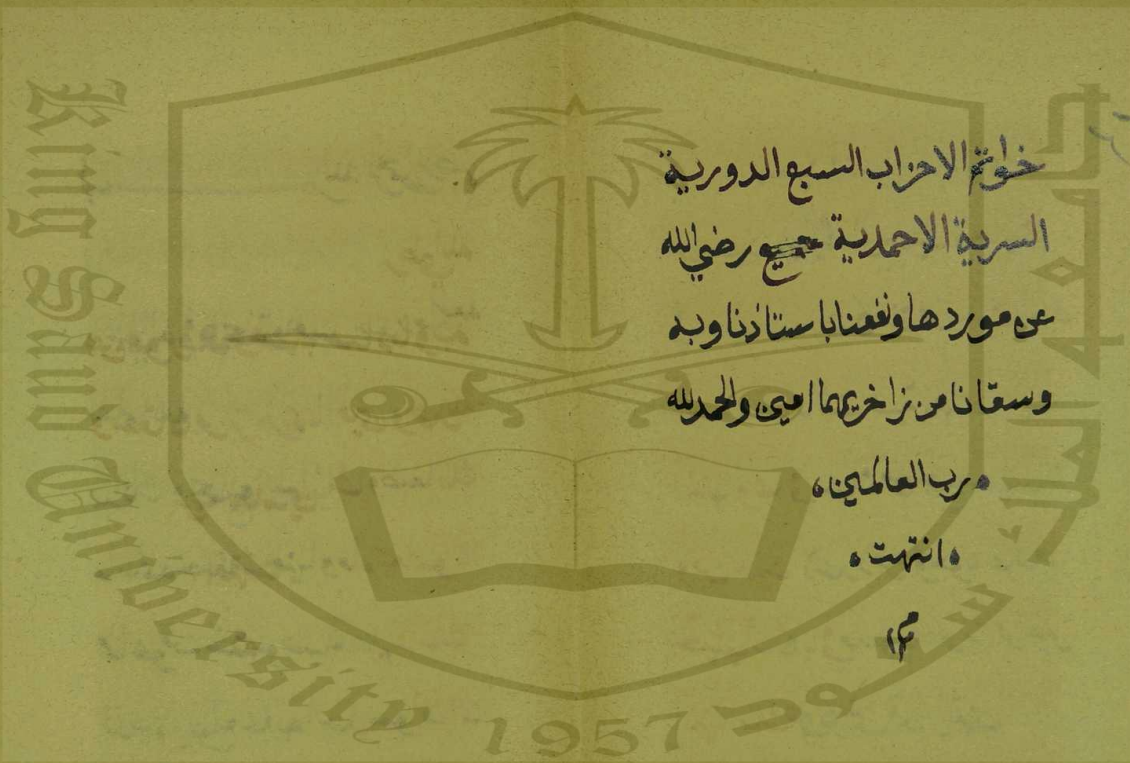 خواتم الاحزاب السبع الدورية
السرية الاحمدية رضي الله
عن موردها ونفعنا باستاذنا وبه
وسقانا من زاخريهما امين والحمد لله
رب العالمين
انتهت
م
King Saud University 1957
جامعة الملك سعود